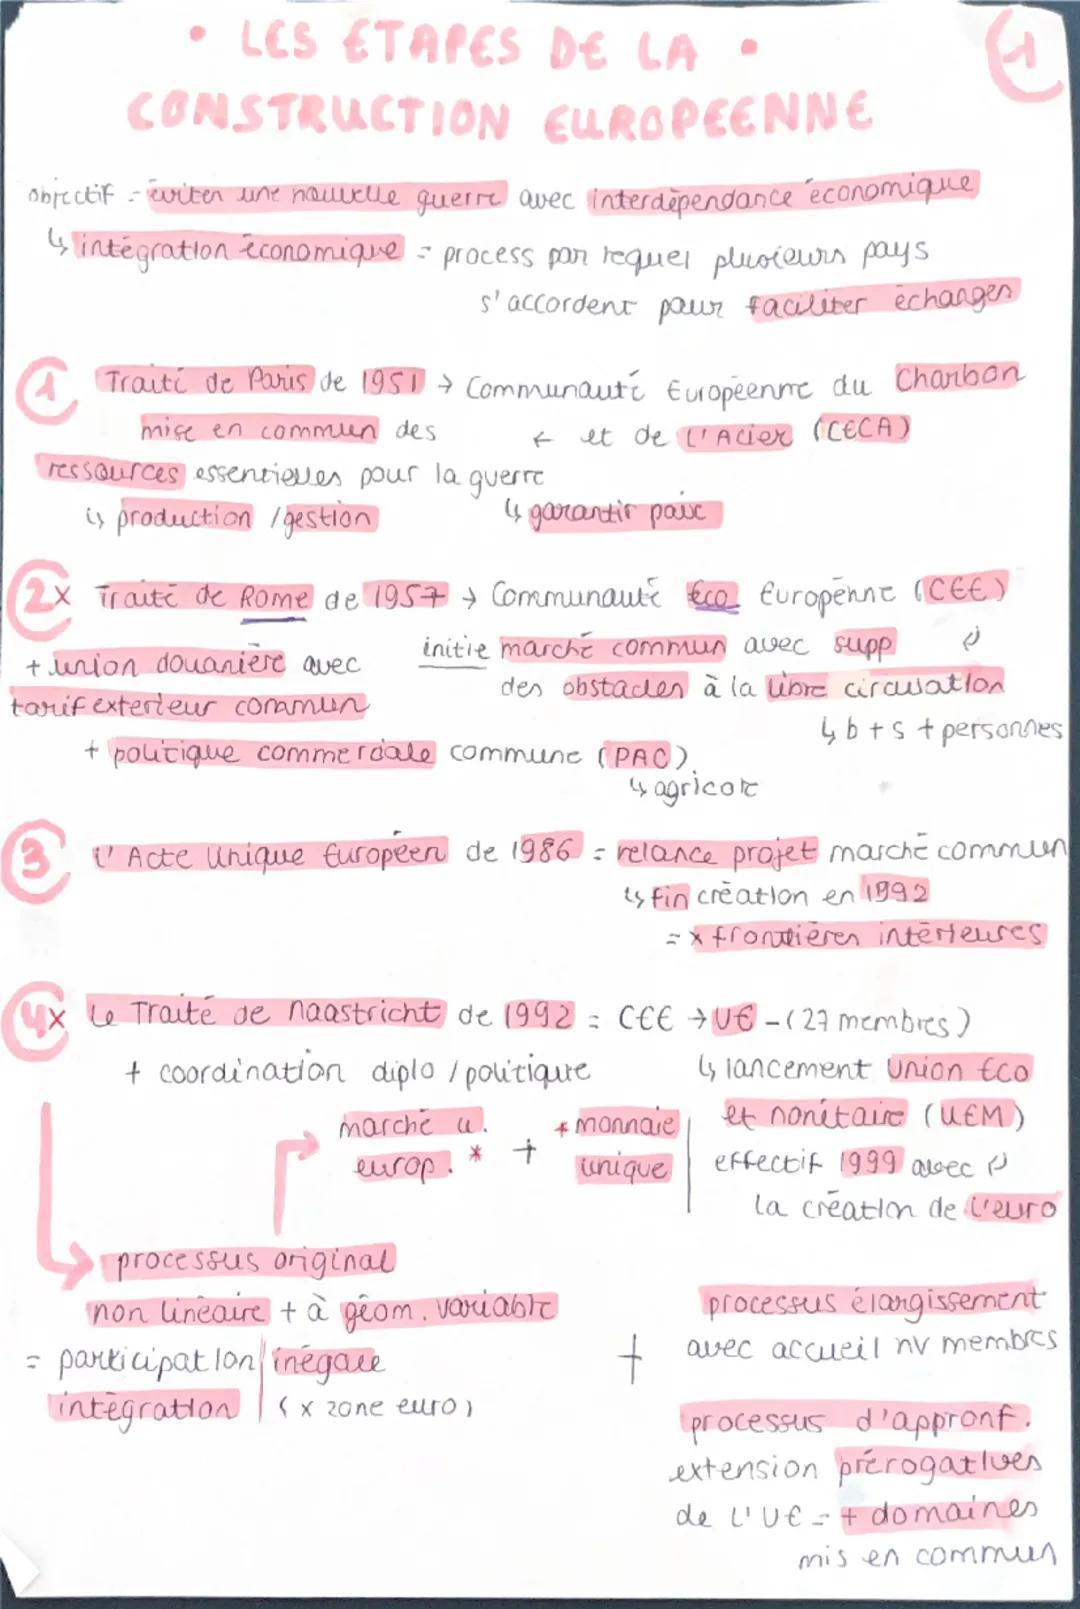 • LES ETAPES DE LA •
1
CONSTRUCTION EUROPEENNE
objectif = éviter une nouvelle guerre avec interdépendance économique
↳ intégration économique = process par lequel plusieurs pays
s'accordent pour faciliter échanges
1 Traité de Paris de 1951 → Communauté Européenne du Charbon
mise en commun des ← et de l'Acier (CECA)
ressources essentielles pour la guerre
↳ production / gestion ↳ garantir paix
2x Traité de Rome de 1957 → Communauté éco Europénne (CEE)
+ union douanière avec initie marché commun avec supp
des obstacles à la libre circulation
tarif exterieur commun
↳ b + s + personnes
+ politique commerciale commune (PAC)
↳ agricole
3 L'Acte Unique Européen de 1986 = relance projet marché commun
↳ fin création en 1992
= x frontières intérieures
4x Le Traité de Maastricht de 1992 = CEE → UE - (27 membres)
+ coordination diplo / politique ↳ lancement Union Eco
marché u. + monnaie et Monétaire (UEM)
europ. * + unique effectif 1999 avec
la création de l'euro
processus original
non linéaire + à géom. variable
processus élargissement
= participation inégale + avec accueil nv membres
intégration (x zone euro)
processus d'appronf.
extension prérogatives
de l'UE = + domaines
mis en commun